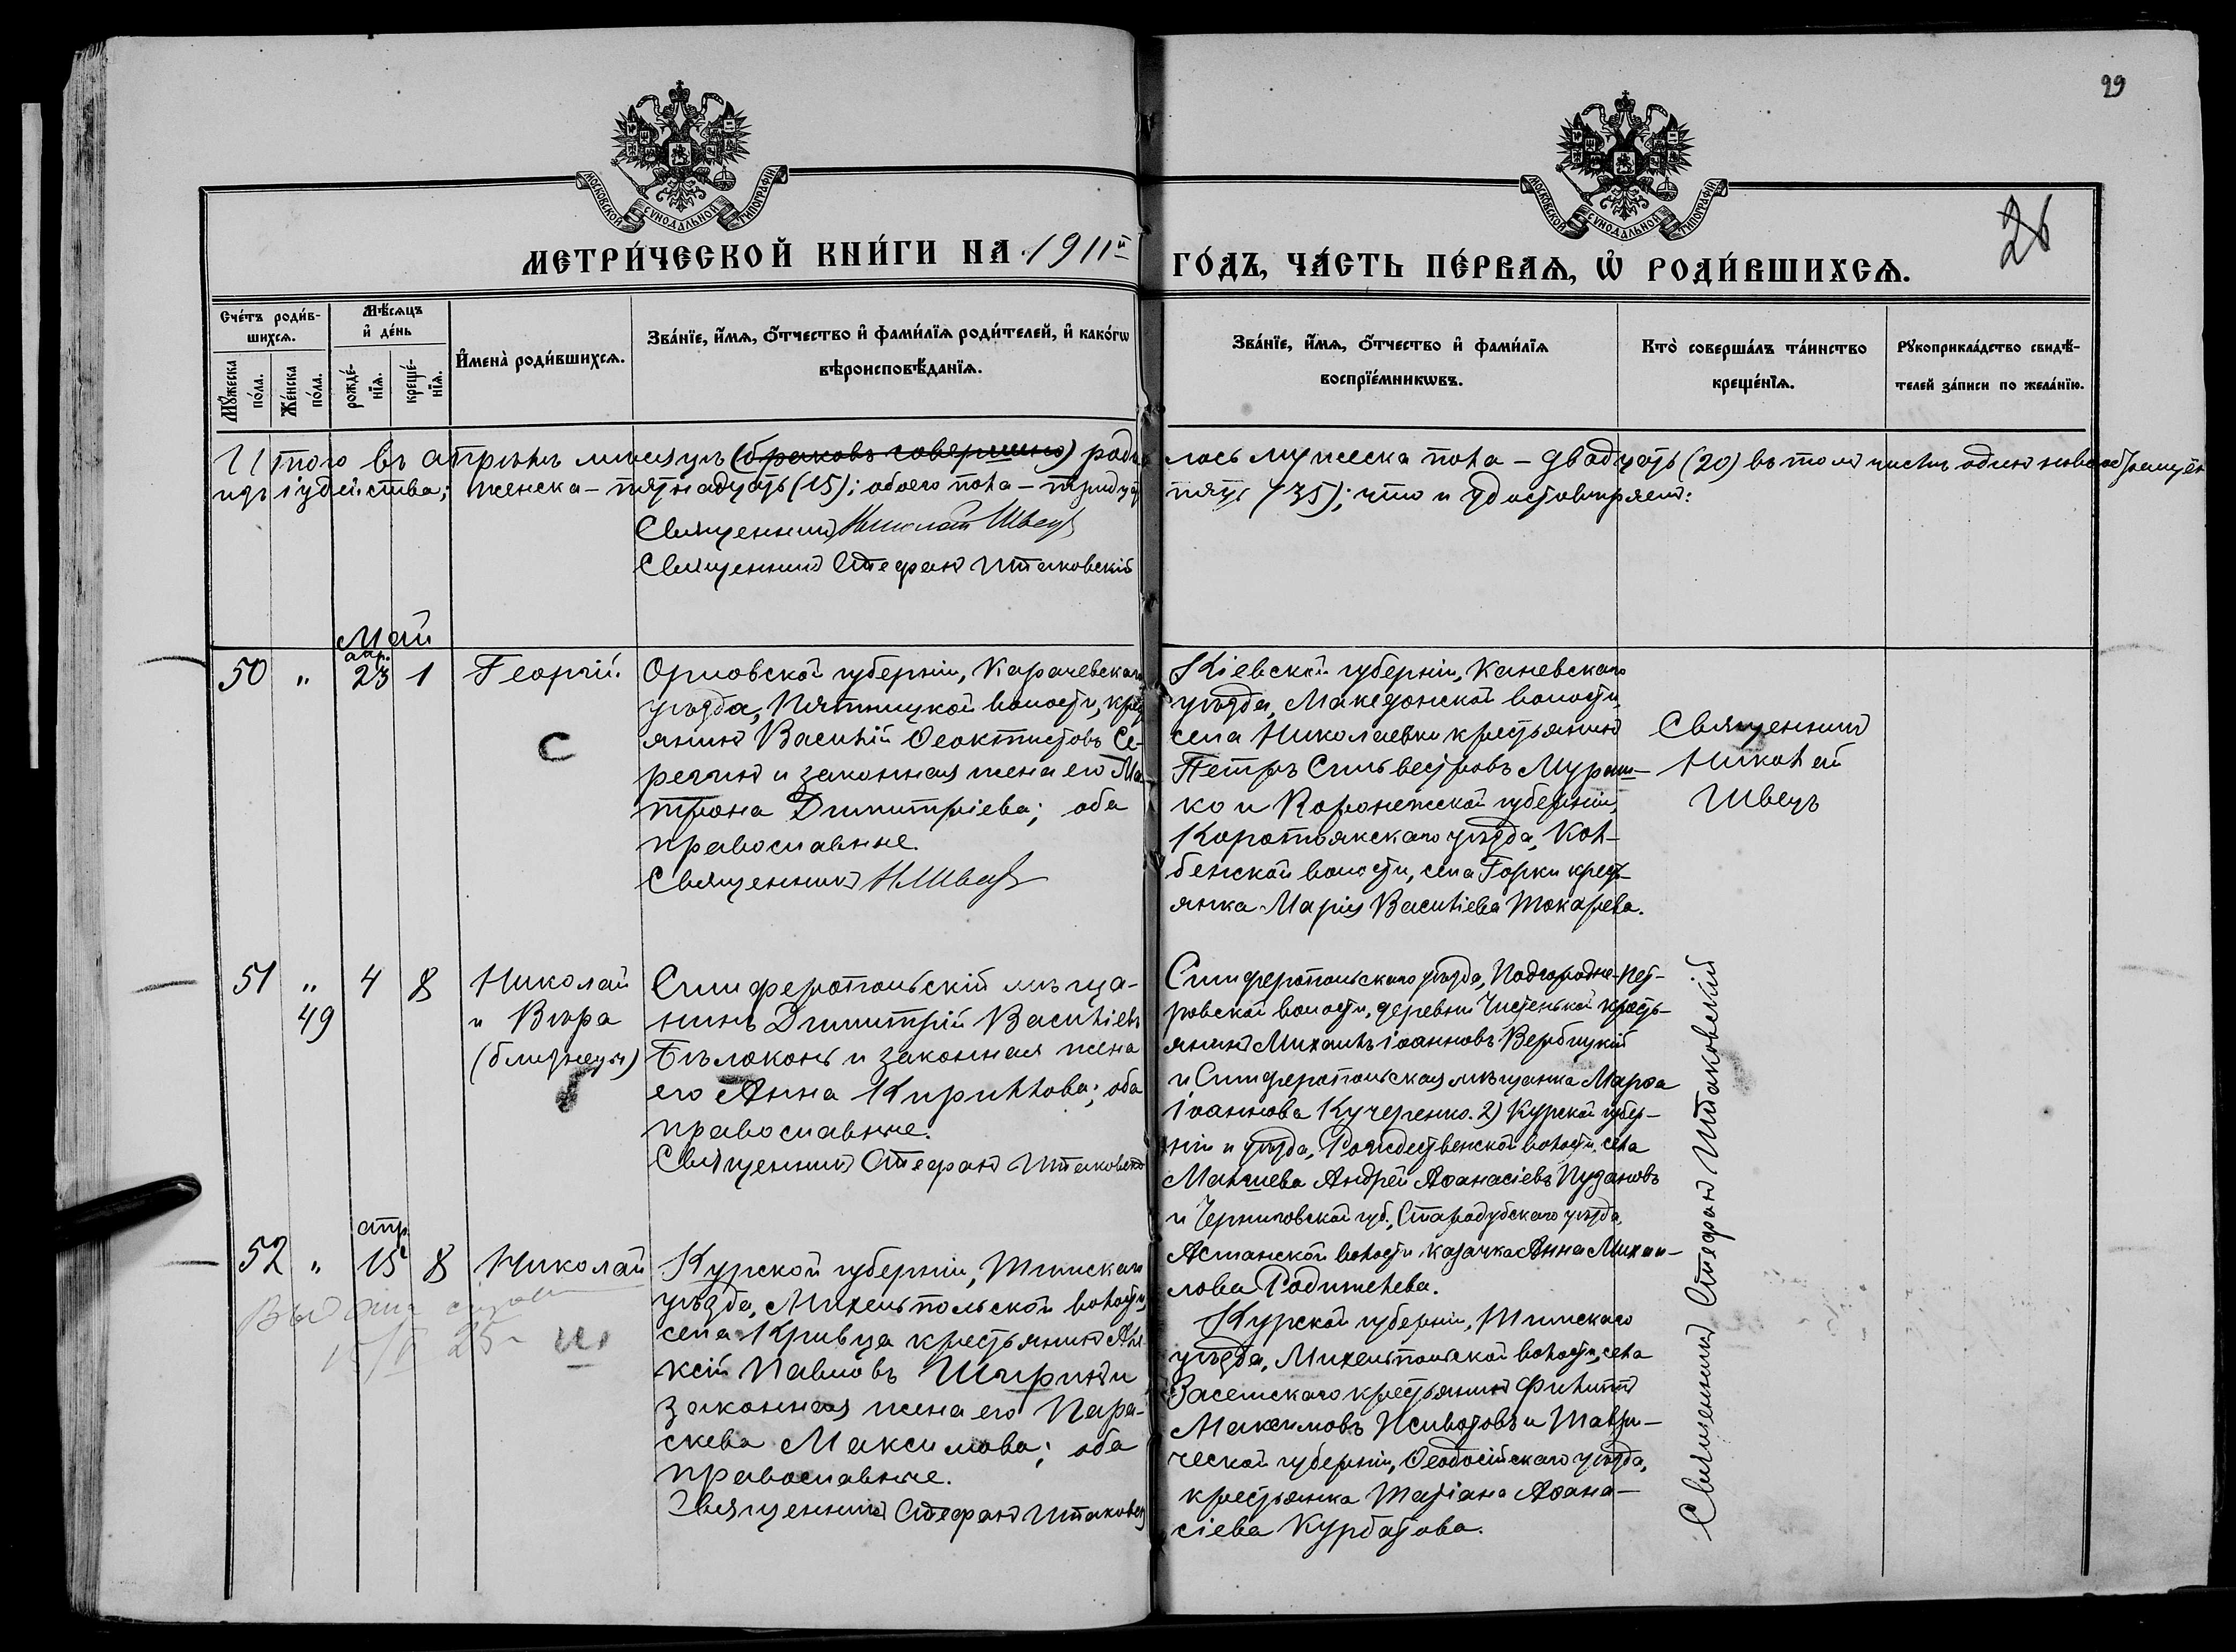 29
26
МОСКОВСКОЙ СѴНОДАЛЬНОЙ ТИПОГРАФІИ
МОСКОВСКОЙ СѴНОДАЛЬНОЙ ТИПОГРАФІИ
МЕТРИ́ЧЕСКОЙ КНИ́ГИ НА 1911й ГО́ДЪ, ЧА́СТЬ ПЕ́РВАѦ, Ѡ҆ РОДИ́ВШИХСѦ.
Сче́тъ роди́в-
шихсѧ.
Мꙋ́жеска по́ла.
Же́нска по́ла.
Мѣ́сѧцъ
и҆ де́нь
рожде́-
нїѧ.
креще́-
нїѧ.
И҆мена̀ роди́вшихсѧ.
Зва́нїе, и҆́мѧ, ѻ҆́тчество и҆ фами́лїѧ роди́телей, и҆ како́гѡ
вѣроисповѣ́данїѧ.
Зва́нїе, и҆́мѧ, ѻ҆́тчество и҆ фами́лїѧ
воспрїе́мникѡвъ.
Кто̀ соверша́лъ та́инство
креще́нїѧ.
Рꙋкоприкла́дство свидѣ́-
телей за́писи по жела́нїю.
Итого въ апрѣлѣ мѣсяцѣ (браковъ совершено) роди лось мужеска пола – двадцать (20) въ томъ числѣ одинъ новообращен
изъ іудейства; женска – пятнадцать (15); обоего пола – тридцать пять (35); что и удостовѣряемъ:
Священникъ Николай Швецъ
Священникъ Стефанъ Штаковскій
Май
50 " апр. 23 1 Георгій
С
Орловской губерніи, Карачевскаго
уѣзда, Пятницкой волости, крест
янинъ Василій Ѳеоктистовъ Се-
регинъ и законная жена его Ма-
трона Димитріева; оба
православные.
Священникъ Н. Швецъ
Кіевской губерніи, Каневскаго
уѣзда, Македонской волости,
села Николаевки крестьянинъ
Петръ Сильвестровъ Мураш-
ко и Воронежской губерніи,
Коротоякскаго уѣзда, Кол-
бенской волости, села Горки кресть-
янка Марія Васильева Токарева.
Священникъ
Николай
Швецъ
51 " 4 8 Николай
49 и Вѣра
(близнецы)
Симферопольскій мѣща-
нинъ Димитрій Васильевъ
Бѣлоконь и законная жена
его Анна Кириллова; оба
православные.
Священникъ Стефанъ Штаковскій
Симферопольскаго уѣзда, Подгородне-Пет-
ровской волости, деревни Чистенькой кресть-
янинъ Михаилъ Іоанновъ Вербицкій
и Симферопольская мѣщанка Марѳа
Іоаннова Кучеренко. 2) Курской губер-
ніи и уѣзда, Рождественской волости, села
Андрей Аѳанасіевъ Пузановъ
и Черниговской губ., Стародубскаго уѣзда,
волости казачка Анна Михаи-
лова Радишева.
Священникъ Стефанъ Штаковскій
52 " апр. 15 8 Николай
Выдана
25
Ш
Курской губерніи, Тимскаго
уѣзда, Михельпольской волости,
села Кривца крестьянинъ Але
ксій Павловъ Ширинъ и
законная жена его Пара-
скева Максимова; оба
православные.
Священникъ Стефанъ Штаковск
Курской губерніи, Тимскаго
уѣзда, Михельпольской волости, села
Засемскаго крестьянинъ Филиппъ
Максимовъ и Таври-
ческой губерніи, Ѳеодосійскаго уѣзда,
крестьянка Татіана Аѳана-
сіева Курбатова.